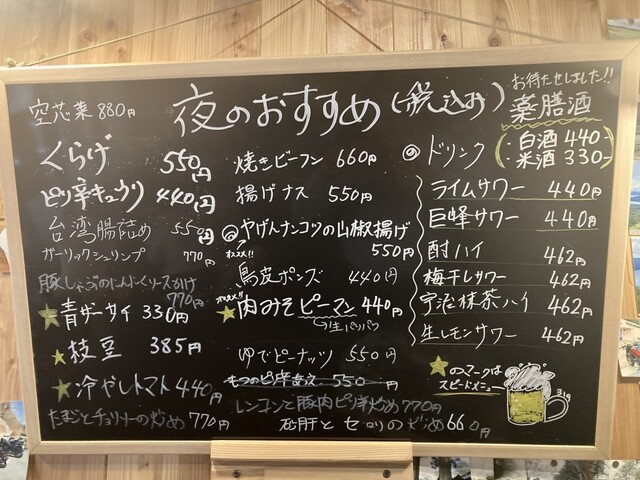 夜のおすすめ(税込み)
空芯菜 880円
くらげ 550円
ピリ辛キュウリ 440円
台湾腸詰め 550円
ガーリックシュリンプ 770円
豚しゃぶのにんにくソースかけ 770円
★青ザーサイ 330円
★枝豆 385円
★冷やしトマト 440円
たまごとチョリソーの炒め 770円
焼きビーフン 660円
揚げナス 550円
◎やげんナンコツの山椒揚げ 550円
オススメ!!
鳥皮ポンズ 440円
オススメ!!
★肉みそピーマン 440円
生パリパリ
ゆでピーナッツ 550円
もつのピリ辛あえ 550円
レンコンと豚肉ピリ辛炒め 770円
砂肝とセロリの炒め 660円
お待たせしました!!
薬膳酒
・白酒 440-
・米酒 330-
◎ドリンク
ライムサワー 440円
巨峰サワー 440円
酎ハイ 462円
梅干しサワー 462円
宇治抹茶ハイ 462円
生レモンサワー 462円
★のマークは
スピードメニュー